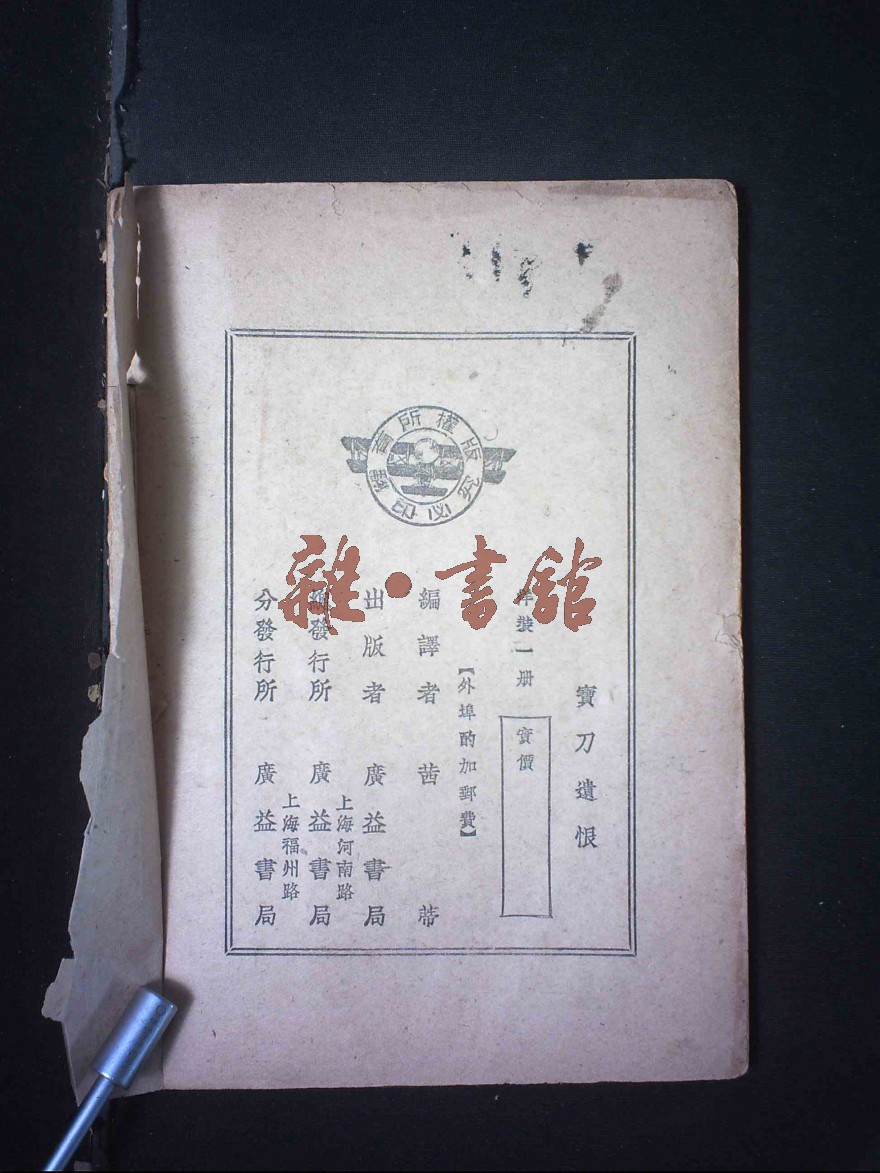 版權所有
翻印必究
寶刀遺恨
洋裝一册
實價
【外埠酌加郵費】
編譯者 茜蒂
出版者 廣益書局
上海河南路
總發行所 廣益書局
上海福州路
分發行所 廣益書局
雜·書館